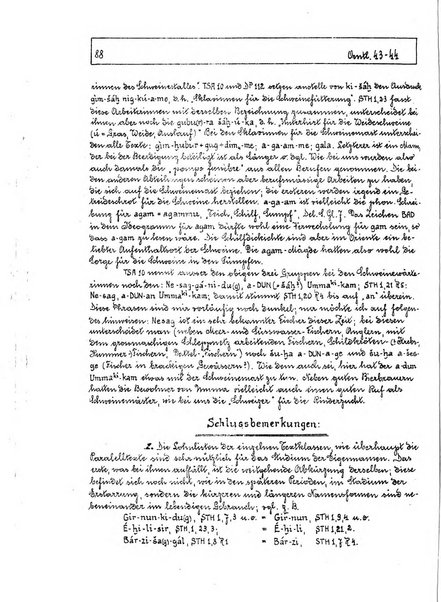 88 Orntl. 43-44
innen des Schweinestalles". TSA 10 und DP 112 setzen anstelle von ki-šáḫ den Ausdruck
gim-šáḫ nig-kú-a-me, d.h. "Sklavinnen für die Schweinefütterung". STH 1,23 fasst
diese Arbeiterinnen mit derselben Bezeichnung zusammen, unterscheidet bei
ihnen aber noch die šáḫ-ú-ka, d.h. für die Weideschweine
(ú = Gras, Weide, Auslauf)." Bei den Sklavinnen für die Schweinemast unterschei-
den alle Texte: gim-ḫubur-gug-dím-me; a-ga-am-me; gala. Letzterer ist ein Mann,
der bei der Beerdigung beteiligt ist als Sänger o. dgl. Wie bei uns wurden also
auch damals die "pompe funèbre" aus allen Berufen genommen. Die bei-
den anderen Abteilungen scheinen berufsmässige Arbeiten zu haben,
die sich auf die Schweinemast beziehen; die ersteren werden irgend ein Ge-
treideschrot für die Schweine herstellen. a-ga-am ist vielleicht die phon. Schrei-
bung für agam = agammu, "Teich, Schilf, Sumpf", Del. S. Gl. 7. Das Zeichen BAD
in dem Ideogramm für agam dürfte wohl eine Verwechslung für gam sein, so
dass a-gam zu lesen wäre. Die Schilfdickichte sind aber im Oriente ein be-
liebter Aufenthaltsort der Schweine. Die agam-Mägde hatten also wohl die
Sorge für die Schweine in den Sümpfen.
TSA 10 nennt ausser den obigen drei Gruppen bei den Schweinewärte-
rinnen noch den: Ne-sag-gá-ni-du(g), a-DUN Umma ki-kam; STH 1,21
Ne-sag, a-DUN-an Umma ki-kam; damit stimmt STH 1,20 bis auf "an" überein.
Diese Phrasen sind mir vorläufig noch dunkel; nur möchte ich auf folgen-
des hinweisen: Nesag ist ein sehr bekannter Fischer dieser Zeit; bei diesen
unterscheidet man (neben Meer- und Süsswasser-Fischern, Anglern, mit
dem grossmaschigen Schleppnetz arbeitenden Fischern, Schildkröten-
Hummer-Fischern, -Fischern) noch šu-ḫa a-DUN-a-ge und šu-ḫa a-šeš-
ge (Fischer in brackigen Gewässern?). Wie dem auch sei, hier hat der a-dun
Umma ki-kam etwas mit der Schweinemast zu tun. Neben guten Bierbrauern
hatten die Bewohner von Umma vielleicht auch einen guten Ruf als
Schweinemäster, wie bei uns die "Schweizer" für die Rinderzucht.
Schlussbemerkungen:
1. Die Lohnlisten der einzelnen Textklassen, wie überhaupt die
Paralleltexte sind sehr nützlich für das Studium der Eigennamen. Das
erste, was bei ihnen auffällt, ist die weitgehende Abkürzung derselben; diese
befindet sich noch nicht, wie in den späteren Perioden, im Stadium der
Erstarrung, sondern die kürzeren und längeren Namensformen sind ne-
beneinander im lebendigen Gebrauch; vgl. z. B.
Gir-nun-ki-du(g), STH 1,7,3 u. o. = Gir-nun, STH 1,9,4 u. o.
É-ḫi-li-sír, STH 1,23,3; = É-ḫi-li, STH 1,21,2.
Bár-zi-šà(g)-gál, STH 1,3 = Bár-zi, STH 1,7